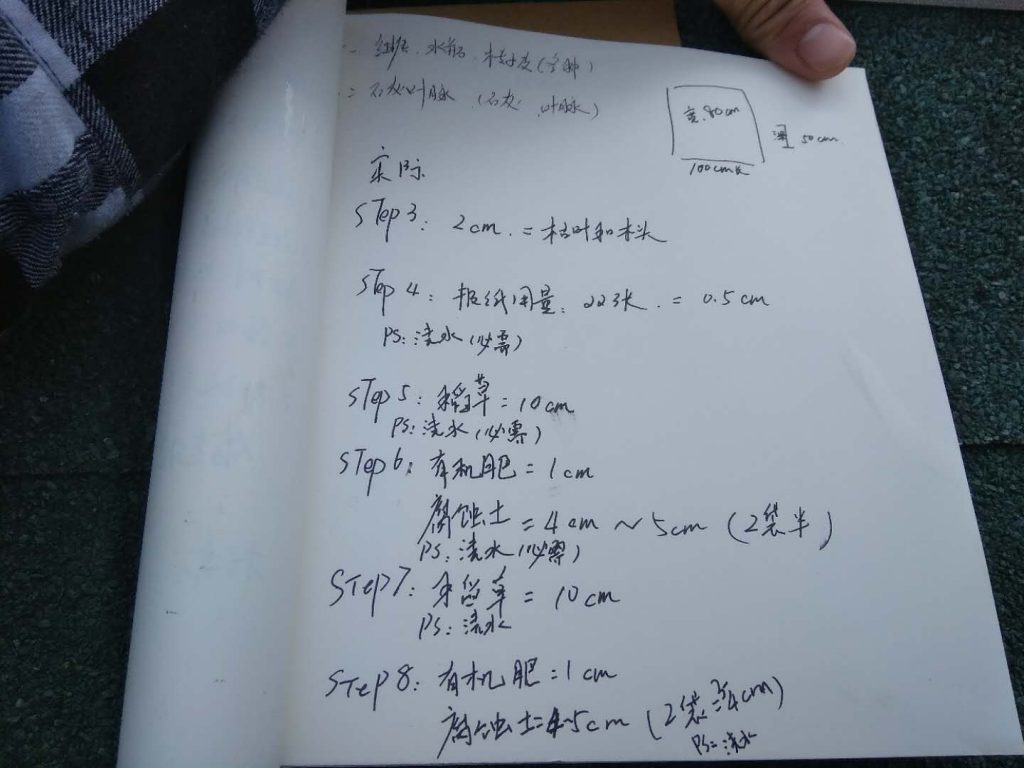 石灰叶脉 (石灰、叶脉)
宽.80cm
深 50cm.
100cm长
实际
STep3: 2cm. = 枯叶和木头
STep 4: 报纸用量: 223张. = 0.5cm
PS: 浇水(必需)
STep5: 稻草=10cm
PS: 浇水(必需)
STep6: 有机肥=1cm
腐蚀土=4cm~5cm (2袋半)
PS: 浇水(必需)
STep7: 稻草=10cm
PS: 浇水
STep8: 有机肥=1cm
腐蚀土=4~5cm (2袋=4cm)
PS: 浇水